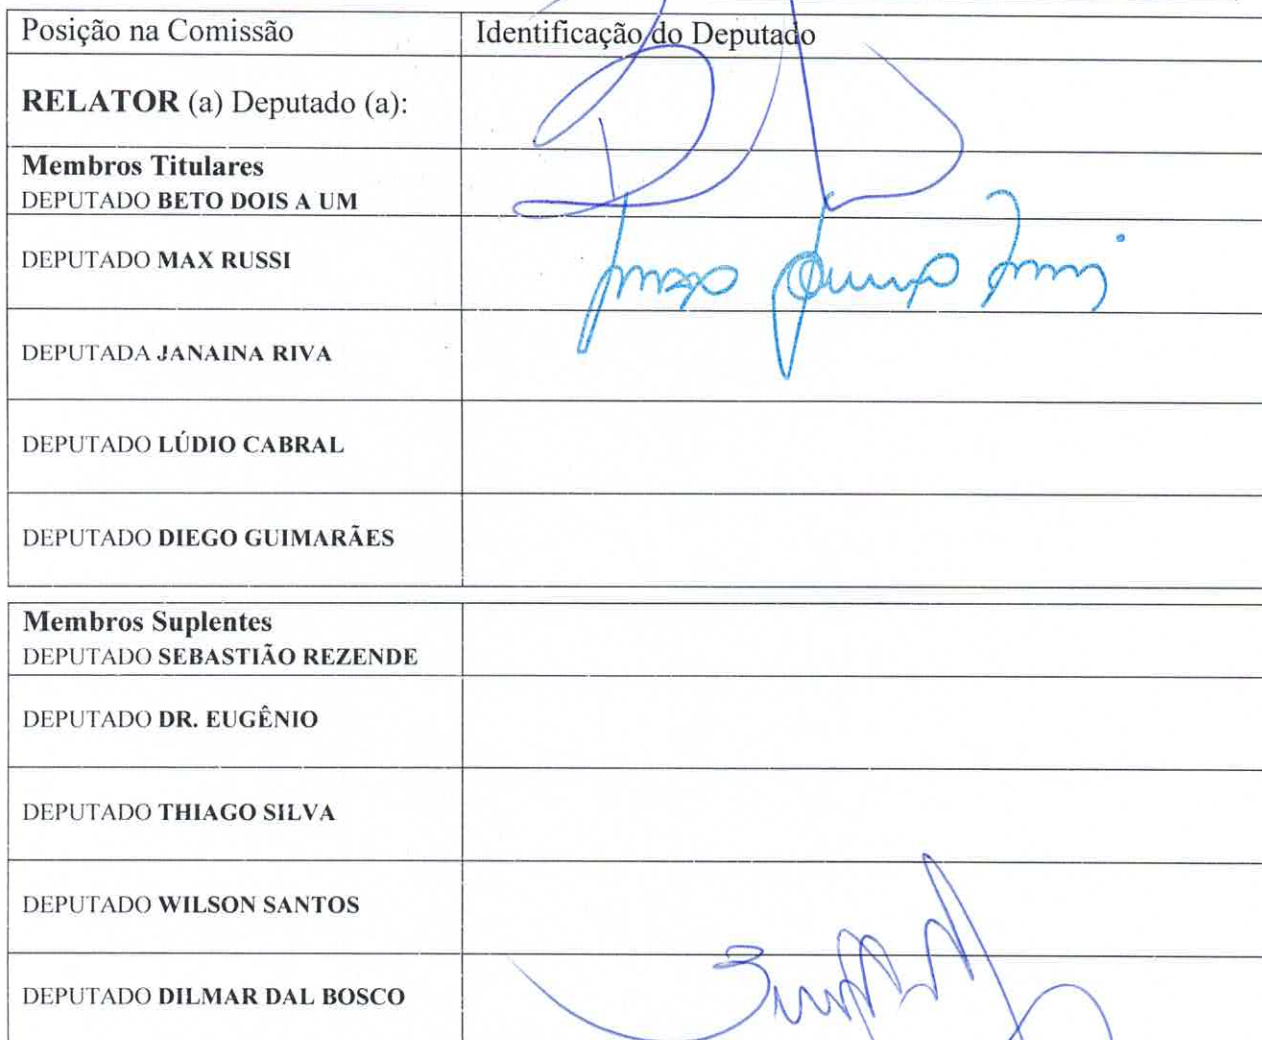 Posição na Comissão
Identificação do Deputado
RELATOR (a) Deputado (a):
Membros Titulares
DEPUTADO BETO DOIS A UM
DEPUTADO MAX RUSSI
DEPUTADA JANAINA RIVA
DEPUTADO LÚDIO CABRAL
DEPUTADO DIEGO GUIMARÃES
Membros Suplentes
DEPUTADO SEBASTIÃO REZENDE
DEPUTADO DR. EUGÊNIO
DEPUTADO THIAGO SILVA
DEPUTADO WILSON SANTOS
DEPUTADO DILMAR DAL BOSCO